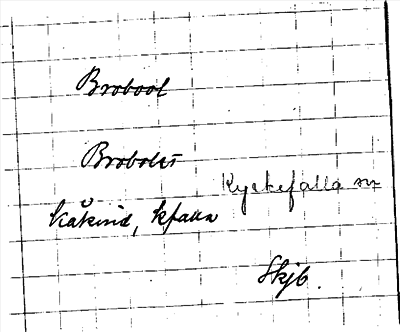 Brobool
Brobolet
Kyrkefalla sn
Kåkind, kfalla
Skjb.